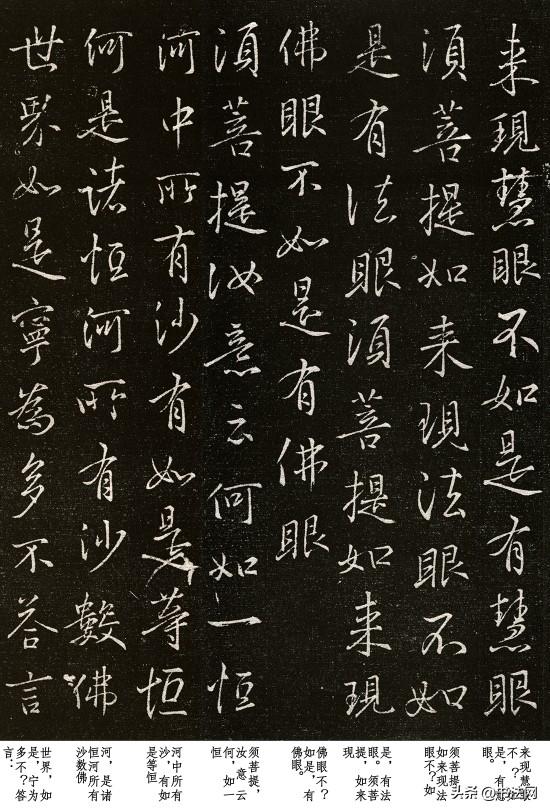 来現慧眼不如是有慧眼
須菩提如来現法眼不如
是有法眼須菩提如来現
佛眼不如是有佛眼
須菩提汝意云何如一恒
河中所有沙有如是等恒
河是諸恒河所有沙數佛
世界如是寧為多不答言
来现慧眼
不？是，有慧
眼。
须菩提，
如来现法
眼不？如
是，有法
眼。须菩
提，如来
现
佛眼不？
如是，有
佛眼。
须菩提，
汝意云
何，如一
恒
河中所有
沙，有如
是等恒
河，是诸
恒河所有
沙数佛
世界，如
是，宁为
多不？答
言：